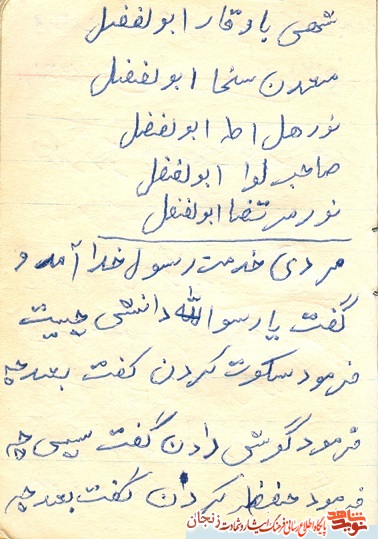 شهی با وقار ابولفضل
معدن سخا ابولفضل
نور هل اطا ابولفضل
صاحب لوا ابولفضل
نور مرتضا ابولفضل
مردی خدمت رسول خدا آمد و
گفت یا رسوالله دانش چیست
فرمود سکوت کردن گفت بعد چه
فرمود گوش دادن گفت سپس چه
فرمود حفظ کردن گفت بعد چه
نوید شاهد
پایگاه اطلاع رسانی فرهنگ ایثار و شهادت زنجان